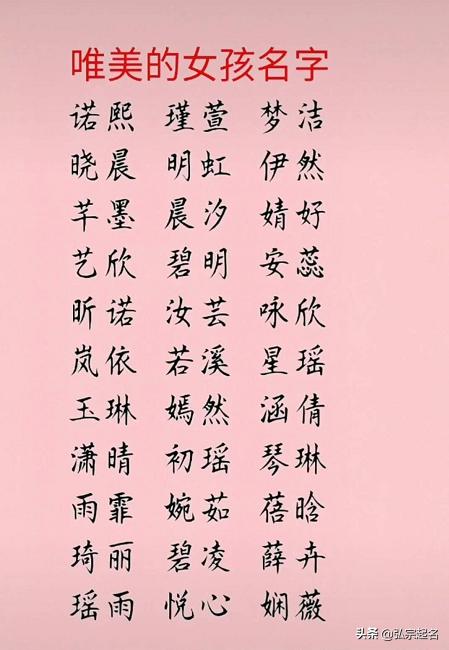 唯美的女孩名字
诺熙 瑾萱 梦洁
晓晨 明虹 伊然
芊墨 晨汐 婧好
艺欣 碧明 安蕊
昕诺 汝芸 咏欣
岚依 若溪 星瑶
玉琳 嫣然 涵倩
潇晴 初瑶 琴琳
雨霏 婉茹 蓓晗
琦丽 碧凌 薛卉
瑶雨 悦心 娴薇
头条 @弘宗起名